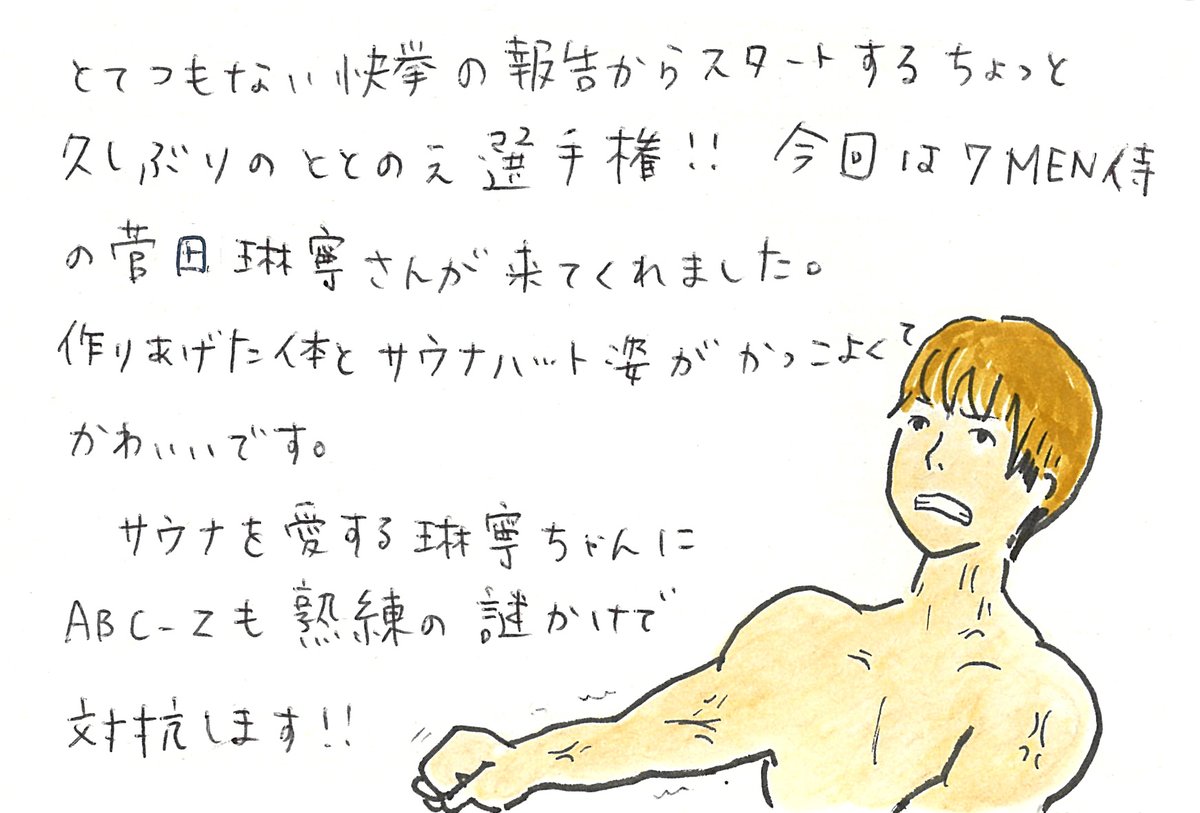 とてつもない快挙の報告からスタートするちょっと
久しぶりのととのえ選手権!! 今回は7MEN侍
の菅田琳寧さんが来てくれました。
作りあげた体とサウナハット姿がかっこよくて
かわいいです。
サウナを愛する琳寧ちゃんに
ABC-Zも熟練の謎かけで
対抗します!!